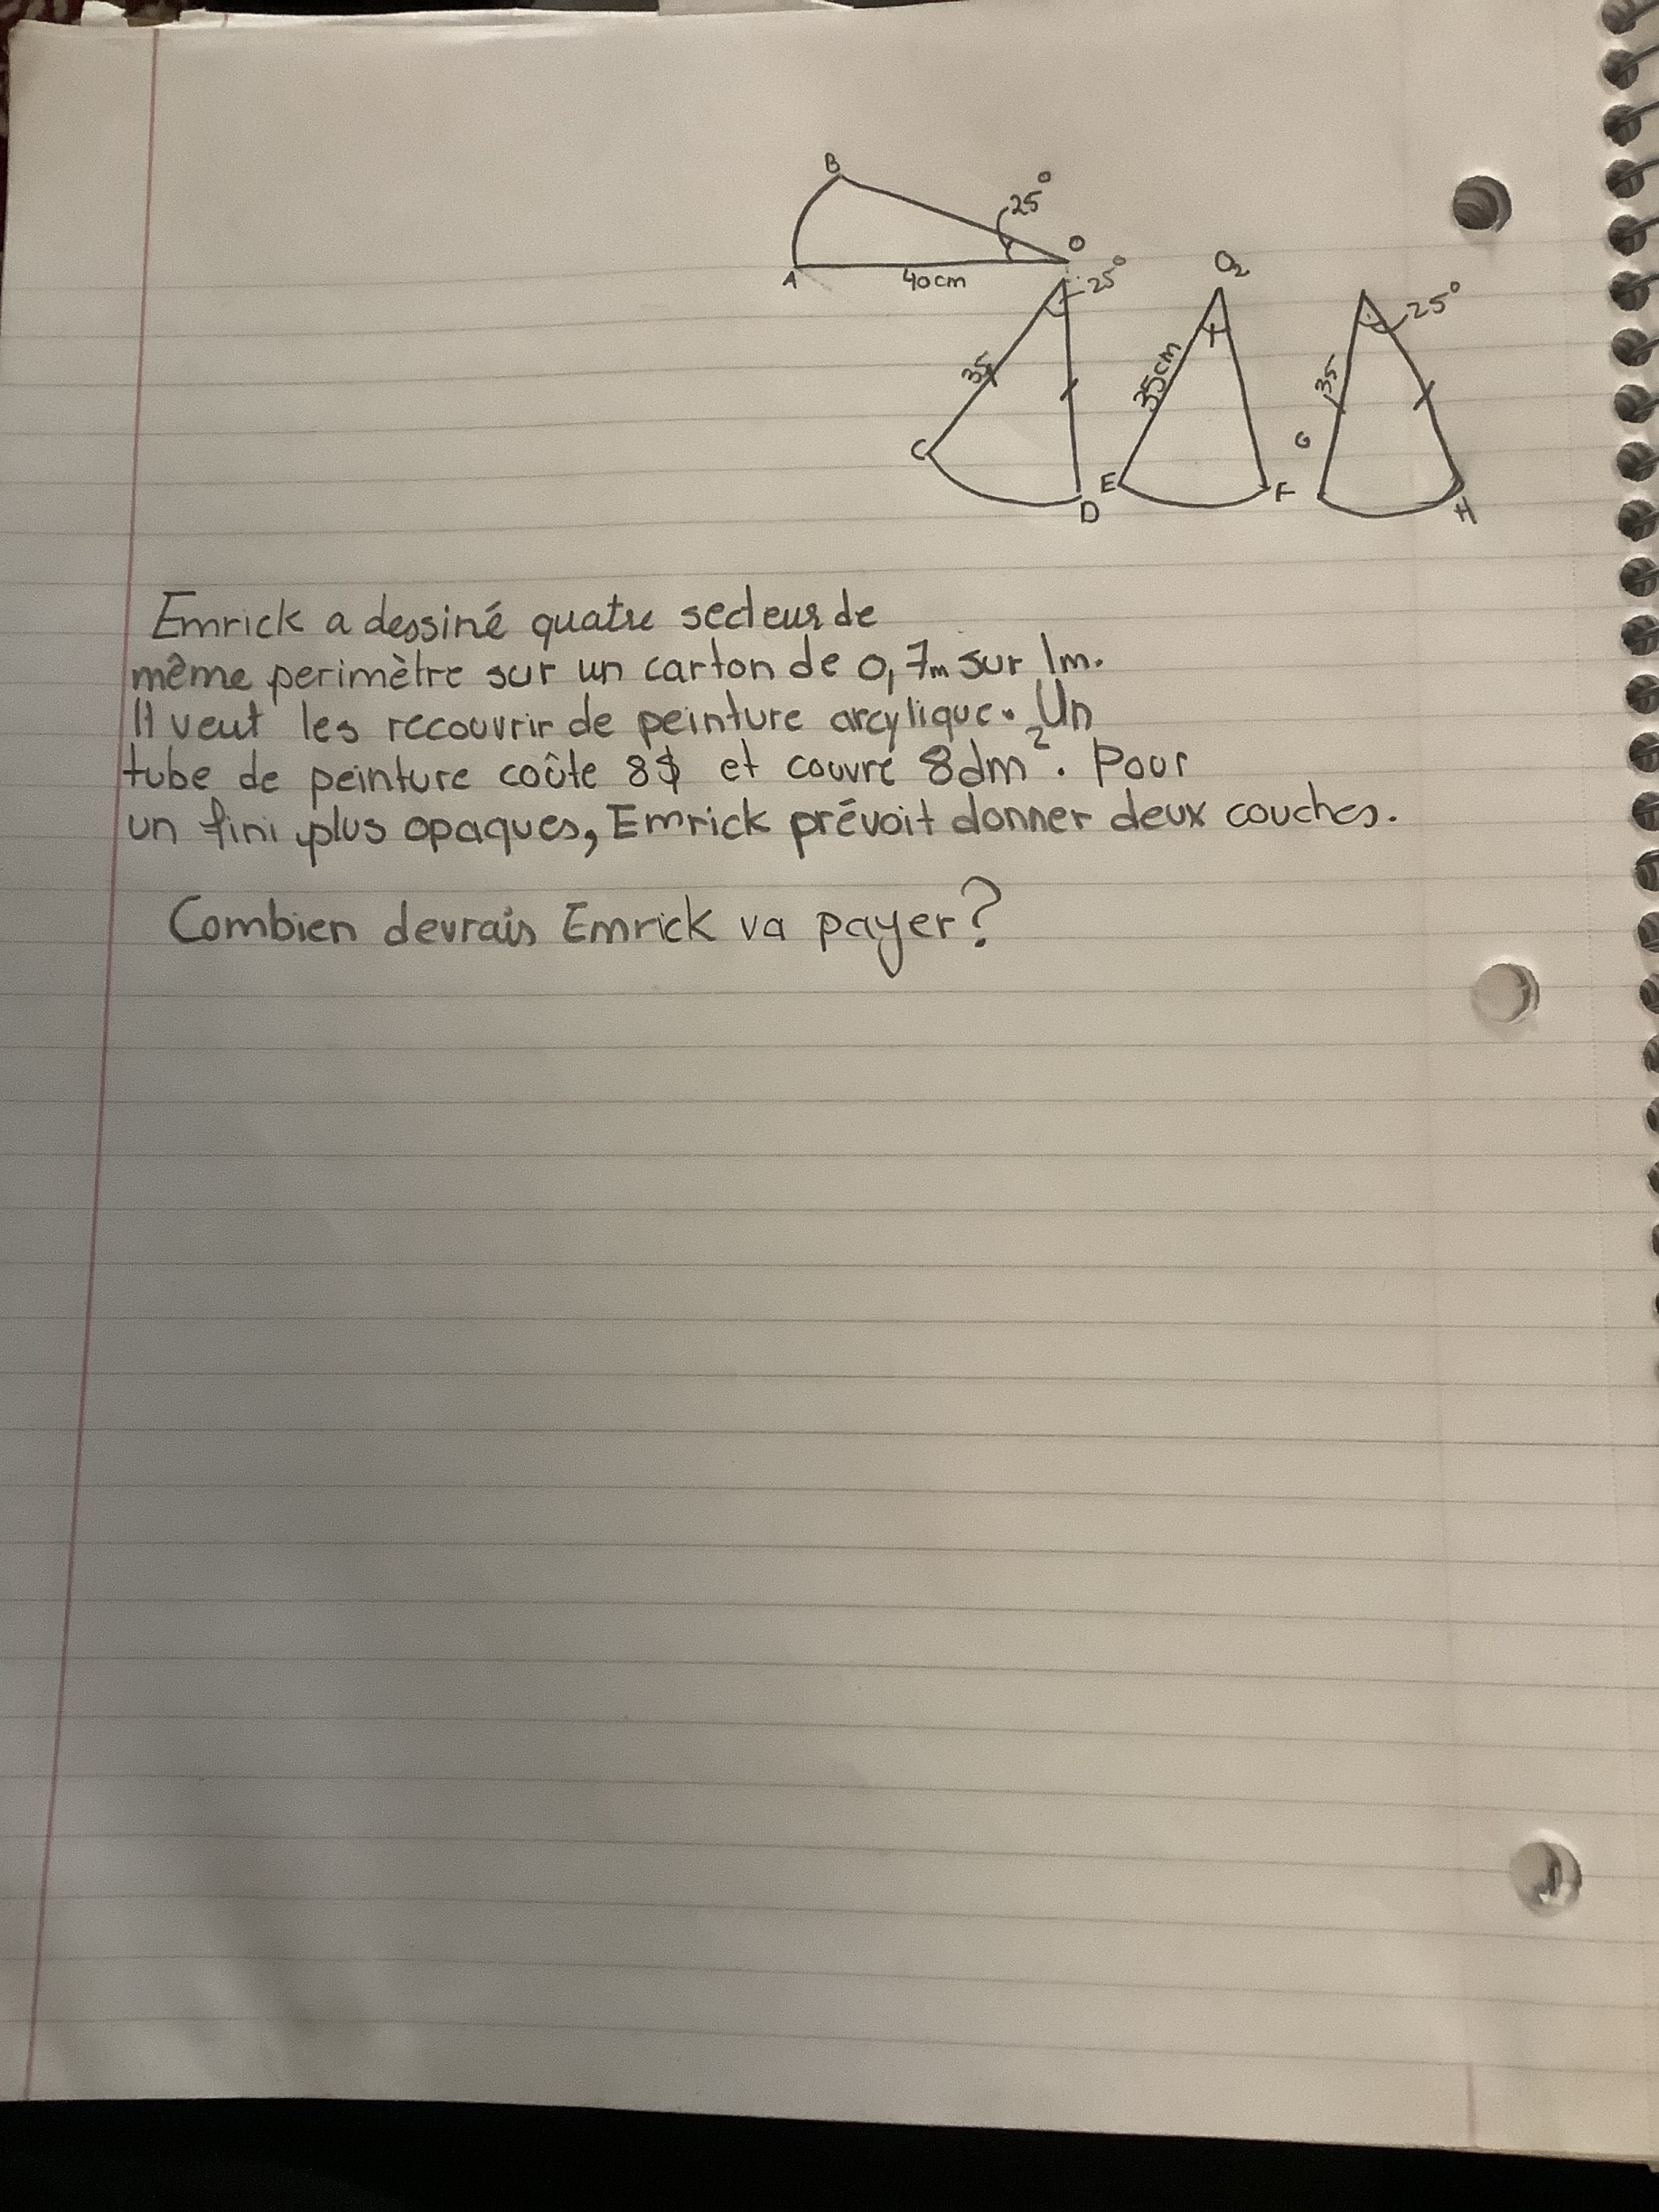 B
25°
O
A
40cm
25°
O2
25°
35
35cm
35
C
G
D
E
F
H
Emrick a dessiné quatre secteur de
même perimètre sur un carton de 0,7m sur 1m.
Il veut les recouvrir de peinture arcylique. Un
tube de peinture coûte 8$ et couvre 8dm². Pour
un fini plus opaques, Emrick prévoit donner deux couches.
Combien devrais Emrick va payer?